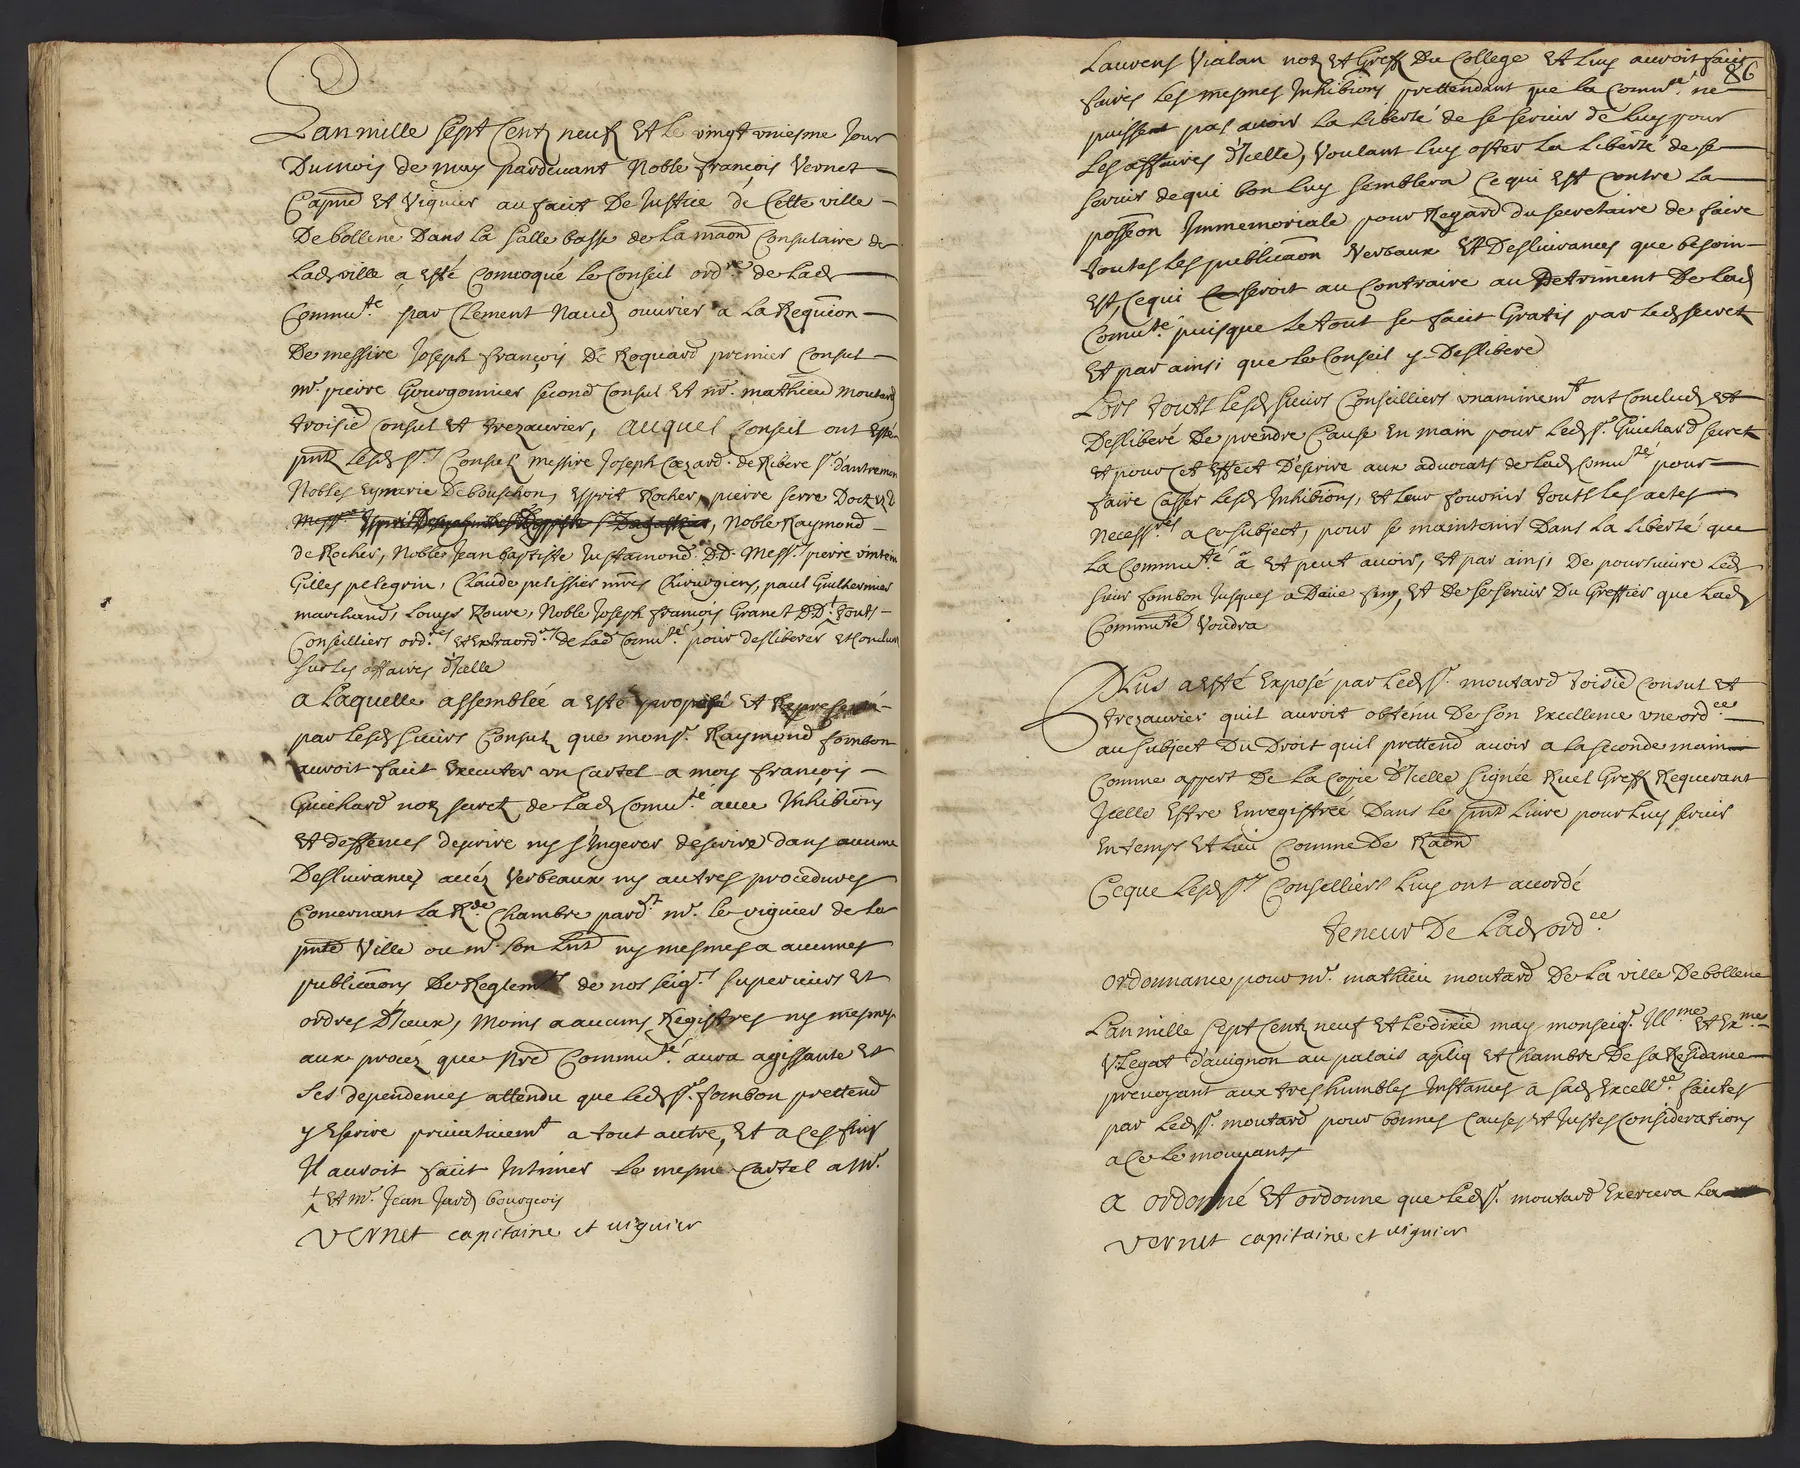 Lan mille sept Centz neuf Et le vingt vniesme Jour
Du mois de may pardeuant Noble francois Vernet
Capne Et Viguier au fait De Justice de Cette ville
De bollene Dans La Salle basse de La maon Consulaire de
Lad ville a esté Conuoqué le Conseil ordre de Lad
Commuté par Clement Naud ouurier a La Requion
De messire Joseph francois De Roquard premier Consul
mr. pierre Gourgonnier second Consul Et mr. mathieu moutard
troisie Consul Et trezaurier, auquel Conseil ont esté
pnts Lesd srs Consulz messire Joseph Cæzard de Ribere sr d'antremon
Nobles Eymerie De bouschon, Esprit Rocher, pierre serre Doct
noble Raymond
de Rocher, Noble Jean baptiste Justamond DD. Messrs pierre vintem
Gilles pelegrin, Claude pelissier mres Chirurgiens, paul Guilhermier
marchand, Louys Roure, Noble Joseph francois Granet DD. touts
Conseilliers ordres et Extraordres de Lad Comuté pour desliberer et Conclure
sur les affaires d'Icelle
a Laquelle assemblée a esté proposé et Representé
par Lesd sieurs Consulz que monsr. Raymond fombon
auroit fait Executer vn Cartel a moy francois
Guichard notre secret de Lad Comuté auec Inhibions
et deffences descrire ny s'Ingerer descrire dans aucune
Desliurances accéz Verbeaux ny autres procedures
Concernant La Rde Chambre pardt mr. le viguier de la
pnte Ville ou mr. son Lnt ny mesmes a aucunes
publicaons De Reglemts de nos seigrs superieurs et
ordres D'Iceux, moins a aucuns Registres ny mesmes
aux procéz que Nred Commuté aura agissante et
ses dependences attendu que Led sr. fombon prettend
y Escrire priuatiuemt a tout autre, Et a ces fins
Il auroit fait Intimer Le mesme Cartel a Mr.
+ et Mr. Jean Jard bourgeois
Vernet capitaine et uiguier
86
Laurens Vialan notre et Greff Du College et Luy auroit fait
faires les mesmes Inhibions prettendant que la Commté ne
puissent pas auoir La Liberté de se seruir de Luy pour
Les affaires d'Icelle, Voulant luy oster La Liberté de se
seruir de qui bon luy semblera Ce qui Est contre La
posseon Immemoriale pour Regard du secretaire de faire
toutes Les publicaon Verbaux et Desliurances que besoin
Est, Ce qui seroit au Contraire au Detriment De Lad
Comuté puisque le tout se fait Gratis par Led secret
Et par ainsi que le Conseil y Deslibere
Lors touts Lesd sieurs Conseilliers vnanimemt ont Conclud et
Desliberé De prendre Cause En main pour Led sr. Guichard secret
et pour cet Effect D'escrire aux aduocats de Lad Comuté pour
faire Casser Lesd Inhibions, et Leur fournir touts les actes
Necessres a ce subject, pour se maintenir Dans La Liberté que
La Commuté a et peut auoir, et par ainsi De poursuiure Led
sieur fombon Jusques a Daue fin, et de se seruir Du Greffier que Lad
Commuté Voudra
Plus a esté Exposé par Led sr. moutard toisie Consul et
trezaurier quil auroit obtenu De son Excellence vne ordce
au subject Du Droit quil prettend auoir a la seconde main
Comme appert De La Copie d'Icelle signée Ruel Greff Requerant
Icelle Estre Enregistrée Dans le pnt Liure pour Luy seruir
En temps et Lieu Comme De Raon
Ce que Lesd srs Conselliers Luy ont accordé
teneur De Lad ordce
ordonnance pour mr. mathieu moutard De La ville De bollene
Lan mille sept Centz neuf et le dixie may monseigr. Illme et Exmes
V.Legat d'auignon au palais apliq et Chambre De sa Residance
prouoyant aux tres humbles Instances a sad Excellce faites
par Led sr. moutard pour bonnes Causes et Justes Considerations
a Ce le mouuants
a ordonné Et ordonne que Led sr. moutard Exercera La
Vernet capitaine et uiguier